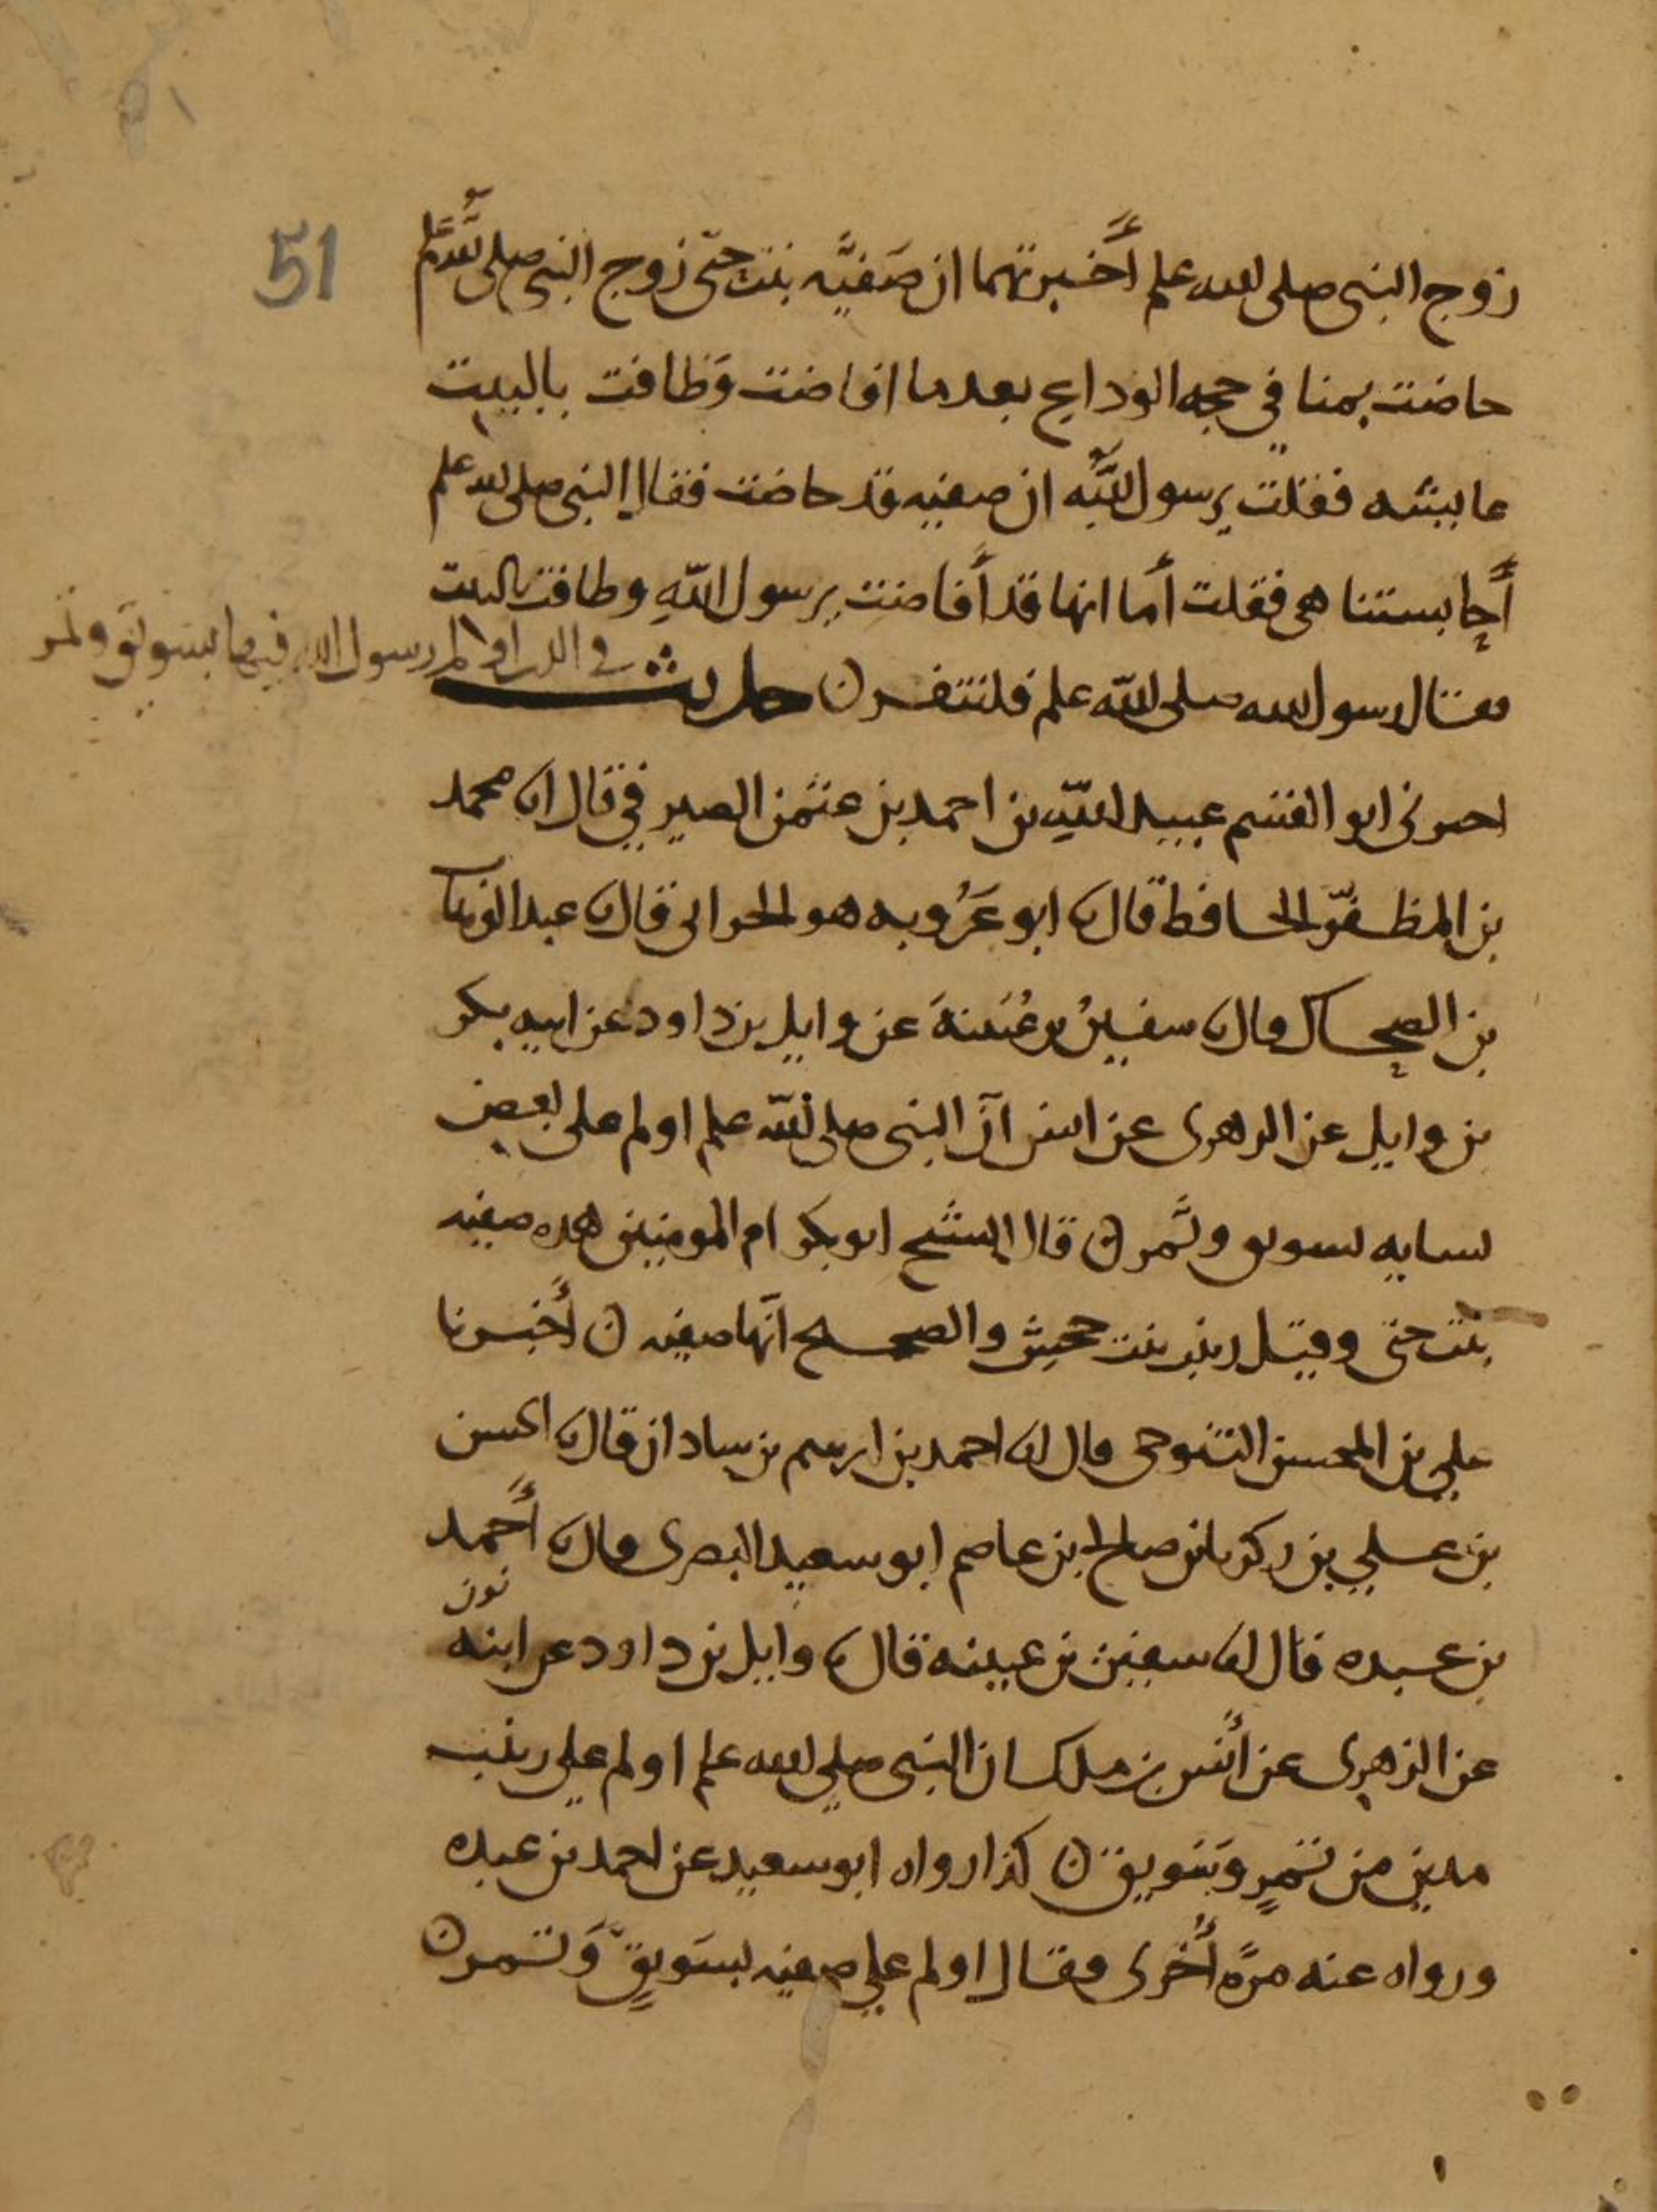 51
زوج النبي صلى الله علم أخبرتهما ان صَفيَّه بنت حيّي زوج النبي صلى الله علم
حاضت بمنا في حجه الوداع بعدما افاضت وَطافت بالبيت
عايشه فقلت يرسول اللَّه ان صفيه قد حاضت فقال النبي صلى الله علم
أَحابستنا هي فقلت أما انها قد أَفاضت يرسول اللّهِ وطافت بالبيت
فقال رسول الله صلى اللّه علم فلتنفر ن حديث في التي اولم رسول الله فيها بسويق وتمر
اخبرني ابو القسم عبيد اللّهِ بن احمد بن عثمن الصيرفي قال انا محمد
بن المظفّر الحافظ قال نا ابو عَرُوبه هو الحراني قال نا عبد الوهاب
بن الضحاك قال نا سفينُ بن عُيَينةَ عن وايل بن داود عن ابيه بكر
بن وايل عن الزهري عن انس آنّ النبي صلى اللّه علم اولم على بعض
نسايه بسويق وتَمر ن قال الشيخ ابو بكر ام المومنين هذه صفيه
بنت حيي وقيل زينب بنت جحش والصحيح انّها صفيه ن أَخبرنا
علي بن المحسن التنوخي قال انا احمد بن ابرهيم بن شاذان قال نا الحسن
بن علي بن زكريا بن صالح بن عاصم ابو سعيد البصري قال نا أَحمد
بن عبده قال نا سفين بن عيينه قال نا وايل بن داود عن ابنه
نون
عن الزهري عن أَنس بن ملك ان النبي صلى الله علم اولم على زينب
مدين من تمرٍ وَسَويق ن كذا رواه ابو سعيد عن احمد بن عبده
ورواه عنه مرَّه أُخرى فقال اولم على صفيه بسَويقٍ وَتمر ن